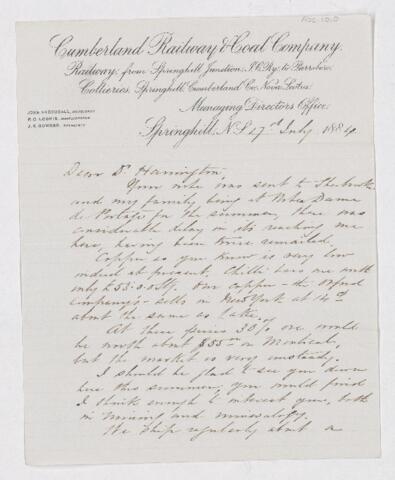 Cumberland Railway & Coal Company.
Railway, from Springhill Junction, I.C.Ry. to Parrsboro.
Collieries, Springhill, Cumberland Co. Nova Scotia.
Managing Directors Office.
JOHN
R. G. LECKIE,
J. R. COWANS,
Springhill, N.S. 17th July 1884.
Dear Dr Harrington,
Your note was sent to Sherbrooke
and my family being at Notre Dame
du Portage for the summer, there was
considerable delay in its reaching me
here, having been twice remailed.
Copper as you know is very low
indeed at present, Chili bars are worth
only £53.0.0 Stg. Our copper - the Orford
Company's - sells in New York at 14
about the same as Lake.
At these prices 30% ore would
be worth about $55 in Montreal,
but the market is very unsteady.
I should be glad to see you down
here this summer, you would find
I think enough to interest you, both
in mining and mineralogy.
We ship regularly about a